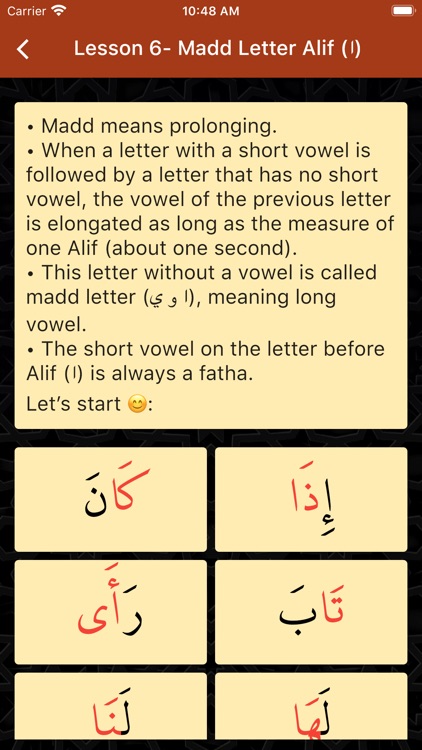 Carrier 10:48 AM
Lesson 6- Madd Letter Alif (ا)
• Madd means prolonging.
• When a letter with a short vowel is
followed by a letter that has no short
vowel, the vowel of the previous letter
is elongated as long as the measure of
one Alif (about one second).
• This letter without a vowel is called
madd letter (ا و ي), meaning long
vowel.
• The short vowel on the letter before
Alif (ا) is always a fatha.
Let's start 😊:
إِذَا
كَانَ
تَابَ
رَأَى
لَهَا
لَنَا